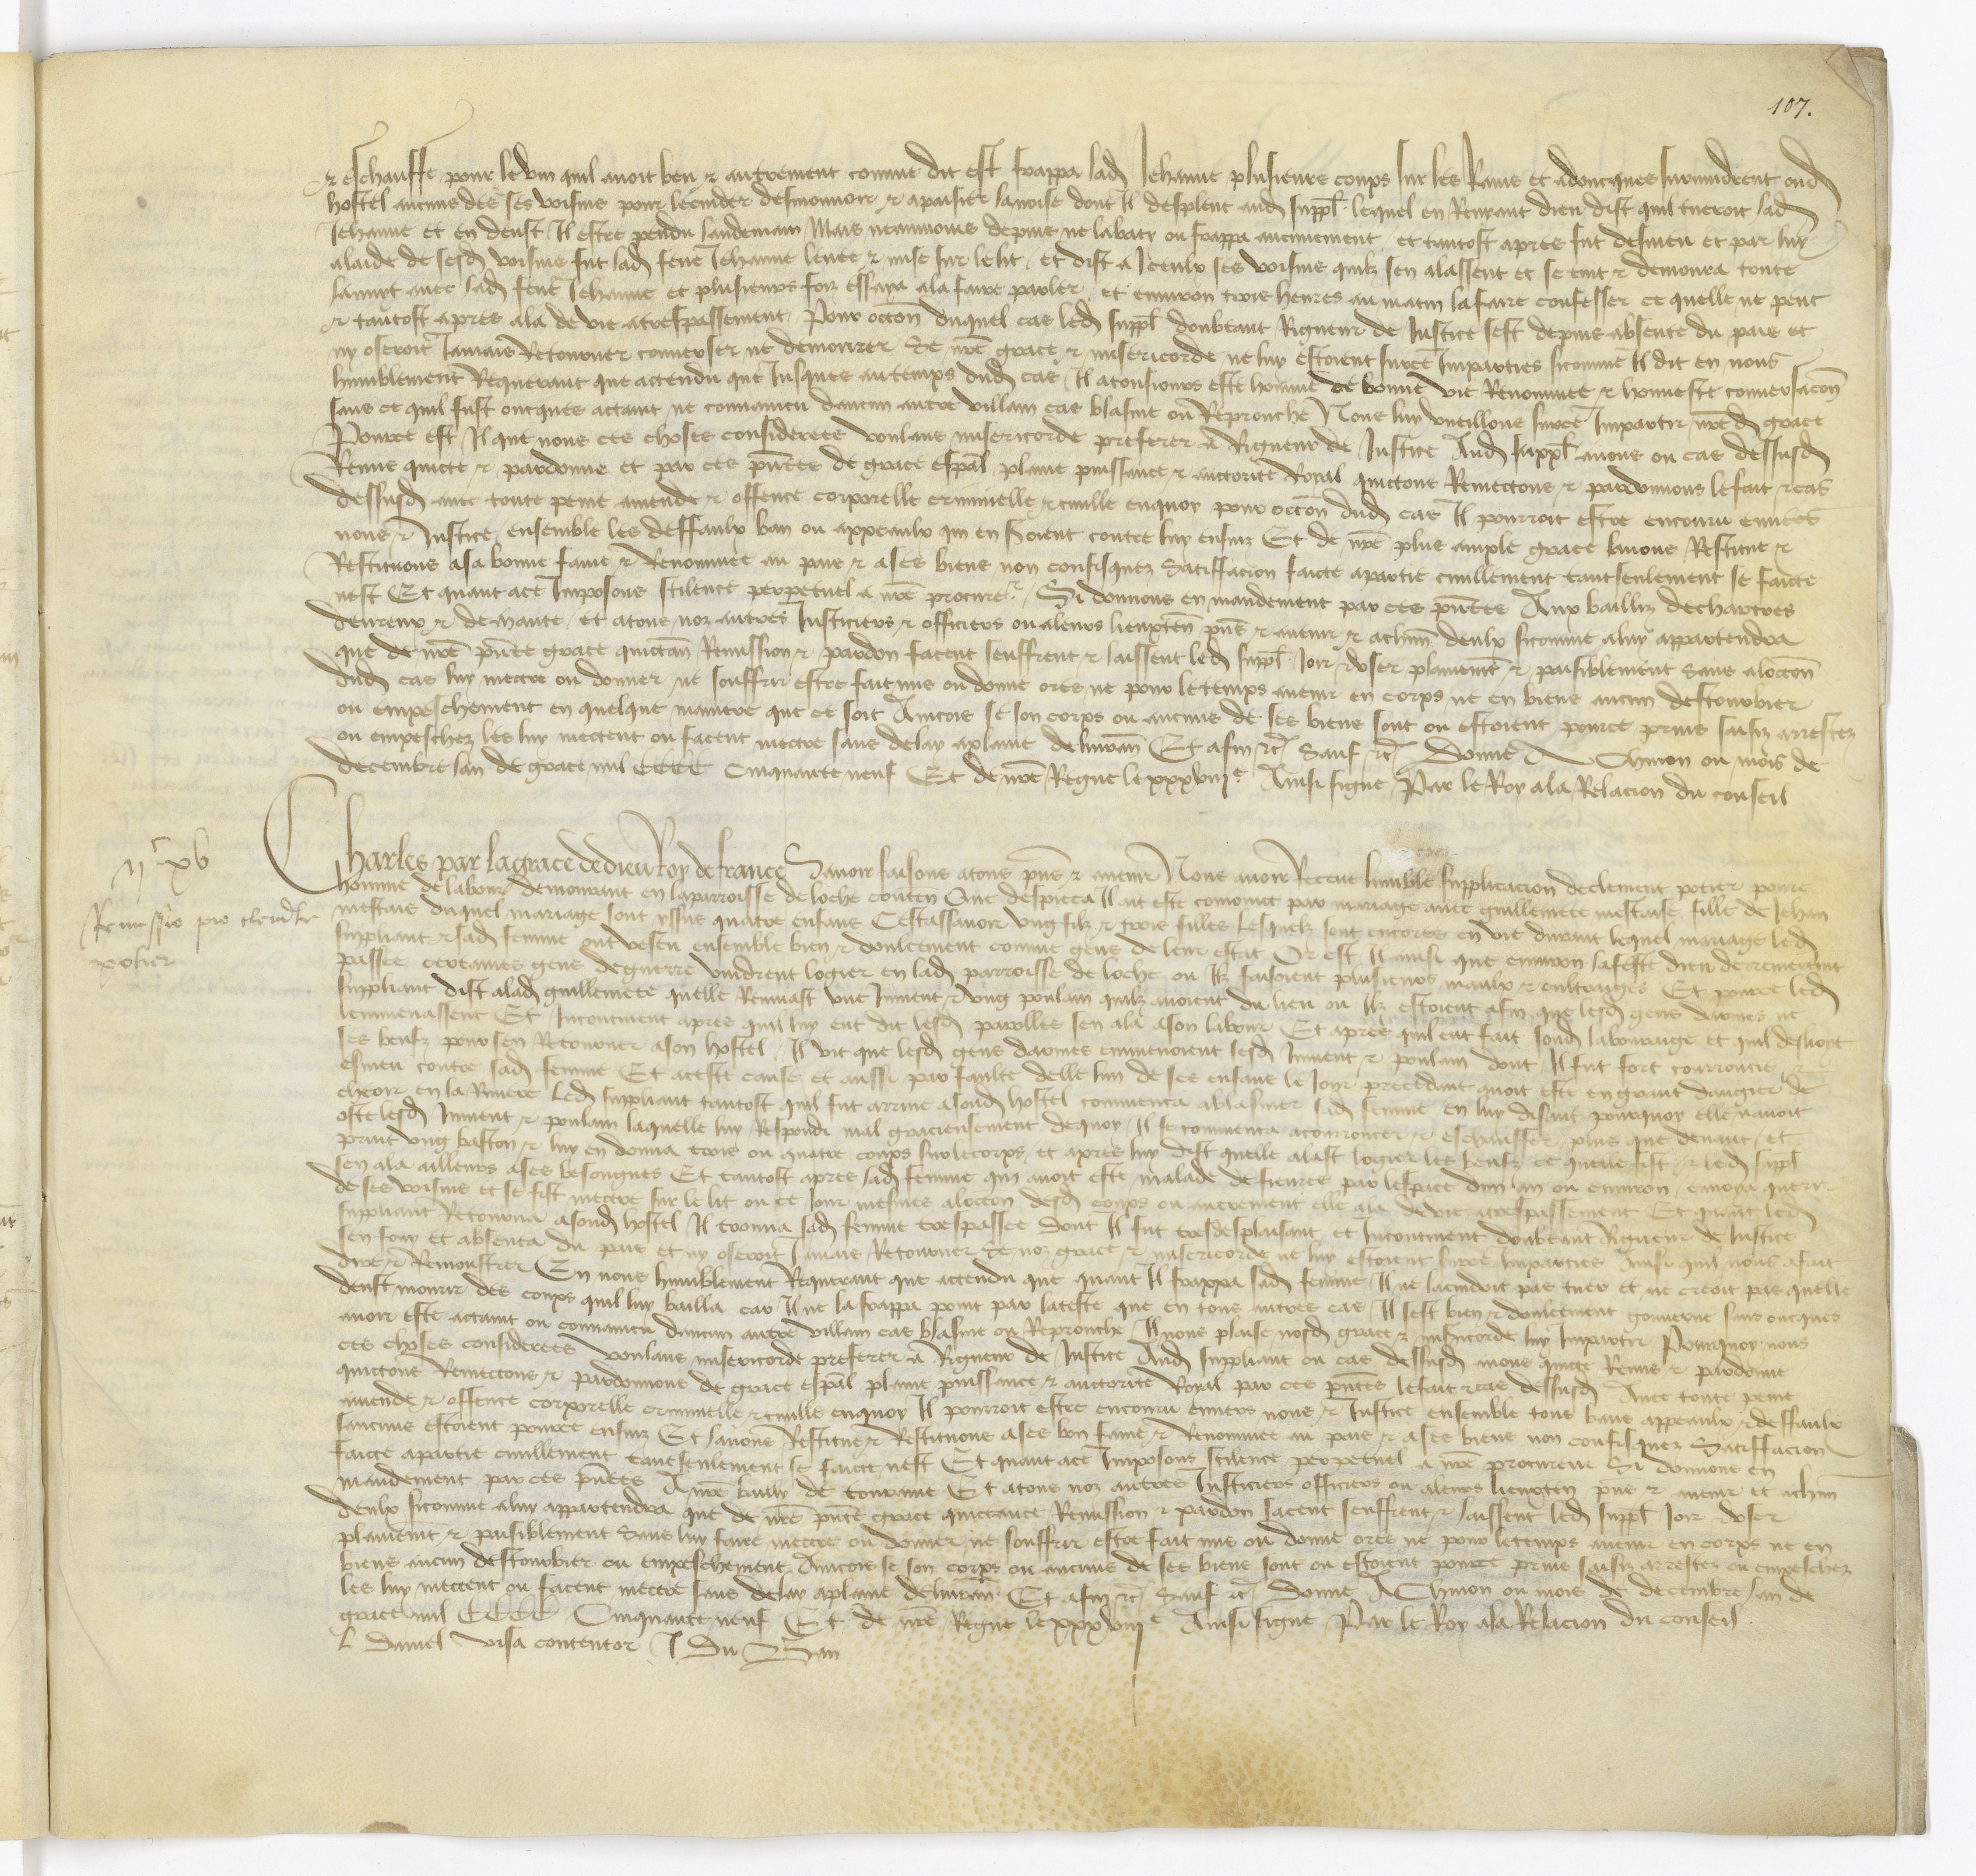 107.
& eschauffe pour le vin quil avoit beu & autrement comme dit est frappa lad Jehanne plusieurs coups sur les Rains et adoncques survindrent oud
hostel aucuns des ses voisins pour le cuider desmouvoir & apaisier la noise dont Il desplent aud suppl lequel en Reniant dieu dist quil tueroit lad
Jehanne et en deust Il estre pendu landemain Mais neantmoins depuis ne la baty ou frappa aucunement et tantost apres fut desmeu et par luy
alaide de sesd voisins fut lad feue Jehanne levee & mise sur le lit et dist a Iceulx ses voisins quilz sen alassent et se tint & demoura toute
la nuyt avec lad feue Jehanne et plusieurs foiz essaya a la faire parler et environ trois heures au matin la faire confesser ce quelle ne peut
& tantost apres ala de vie a trespassement Pour occon duquel cas led suppl doubtant Rigueur de Justice sest depuis absente du pais et
ny oseroit Jamais Retourner converser ne demourer se nre grace & misericorde ne luy estoient sur ce Imparties sicomme Il dit en nous
humblement Requerant que actendu que Jusques au temps dud cas Il a tousiours este homme de bonne vie Renommee & honneste conversacon
sans ce quil fust oncques actaint ne convaincu daucun autre villain cas blasme ou Reprouche Nous luy vueillons sur ce Impartir nred grace
Pource est Il que nous ces choses considerees voulans misericorde preferer a Rigueur de Justice Aud suppl avons ou cas dessusd
Remis quicte & pardonne et par ces pntes de grace espal plaine puissance & auctorite Royal quictons Remectons & pardonnons le fait & cas
dessusd avec toute peine amende & offence corporelle criminelle & civille en quoy pour occon dud cas Il pourroit estre encouru envers
nous & Justice ensemble les deffaulx ban ou appeaulx qui en seroient contre luy ensuiz Et de nre plus ample grace lavons Restitue &
Restituons a sa bonne fame & Renommee au pais & a ses biens non confisquez Satiffacion faicte a partie civillement tant seulement se faicte
nest Et quant a ce Imposons silence perpetuel a nre procureur Si donnons en mandement par ces pntes Aux bailliz de chartres
devreux & de mante et a tous noz autres Justiciers & officiers ou a leurs lieuxten pns & avenir & a chun deulx sicomme a luy appartendra
que de nre pnte grace quictan Remission & pardon facent seuffrent & laissent led suppl Joir & user plainemt & paisiblement sans a loccon
dud cas luy mectre ou donner ne souffrir estre fait mis ou donne ores ne pour le temps avenir en corps ne en biens aucun destourbier
ou empeschement en quelque maniere que ce soit Aincois se son corps ou aucuns de ses biens sont ou estoient pource prins saisiz arrestez
ou empeschez les luy mectent ou facent mectre sans delay a plaine delivran Et afin etc Sauf etc Donne A Chinon ou mois de
decembre lan de grace mil CCCC Cinquante neuf Et de nre Regne le xxxviije Ainsi signe Par le Roy a la Relacion du conseil
ijc xv
Remissio pro clemente
potier
Charles par la grace de dieu Roy de france Savoir faisons a tous pns & avenir Nous avoir Receue humble supplicacion de clement potier povre
homme de labour demourant en la parroisse de loche conten Que despieca Il ait este conioinct par mariage avec guillemete mestaise fille de Jehan
mestais duquel mariage sont yssus quatre enfans Cestassavoir ung filz & trois filles lesquelz sont encores en vie durant lequel mariage led
suppliant & sad femme ont vesqu ensemble bien & doulcement comme gens de leur estat Or est Il ainsi que environ la feste dieu derrenierement
passee certaines gens de guerre vindrent logier en lad parroisse de loche ou Ilz faisoient plusieurs maulx & oultraiges Et pource led
suppliant dist a lad guillemete quelle Remuast une Jument & ung poulain quilz avoient du lieu ou Ilz estoient afin que lesd gens darmes ne
lemmenassent Et Incontinent apres quil luy eut dit lesd parolles sen ala a son labour Et apres quil eut fait sond labouraige et quil deslioyt
ses beufz pour sen Retourner a son hostel Il vit que lesd gens darmes emmenoient sesd Jument & poulain dont Il fut fort courroucie &
esmeu contre sad femme Et a ceste cause et aussi par faulte delle lun de ses enfans le Jour precedant avoit este en grant dangier de
cheoir en la Riviere Led suppliant tantost quil fut arrive a sond hostel commenca a blasmer sad femme en luy disant pourquoy elle navoit
oste lesd Jument & poulain laquelle luy Respondi mal gracieusement de quoy Il se commenca a courroucer & eschauffer plus que devant et
print ung baston & luy en donna trois ou quatre coups sur le corps et apres luy dist quelle alast logier les beufz ce quelle fist & led suppl
sen ala ailleurs a ses besongnes Et tantost apres sad femme qui avoit este malade de fievres par lespace dun an ou environ envoya querir
de ses voisins et se fist mectre sur le lit ou ce Jour mesmes a loccon desd coups ou autrement elle ala de vie a trespassement Et quant led
suppliant Retourna a sond hostel Il trouva sad femme trespassee dont Il fut tresdesplaisant et Incontinent doubtant Rigueur de Justice
sen fouy et absenta du pais et ny oseroit Jamais Retourner se noz grace & misericorde ne luy estoient sur ce Imparties Ainsi quil nous a fait
dire & Remonstrer En nous humblement Requerant que actendu que quant Il frappa sad femme Il ne la cuidoit pas tuer et ne creoit pas quelle
deust mourir des coups quil luy bailla car Il ne la frappa point par la teste que en tous autres cas Il sest bien & doulcement gouverne sans oncques
avoir este actaint ou convaincu daucun autre villain cas blasme ou Reprouche Il nous plaise nosd grace & misericorde luy Impartir Pourquoy nous
ces choses considerees voulans misericorde preferer a Rigueur de Justice Aud suppliant ou cas dessusd avons quicte Remis & pardonne
quictons Remectons & pardonnons de grace espal plaine puissance & auctorite Royal par ces pntes le fait & cas dessusd Avec toute peine
amende & offence corporelle criminelle & civille en quoy Il pourroit estre encouru envers nous & Justice ensemble tous bans appeaulx & deffaulx
saucuns estoient pource ensuiz Et lavons Restitue & Restituons a ses bon fame & Renommee au pais & a ses biens non confisquez Satiffacion
faicte a partie civillement tant seulement se faicte nest Et quant a ce Imposons silence perpetuel a nre procureur Si donnons en
mandement par ces pntes A nre bailly de touraine Et a tous noz autres Justiciers officiers ou a leurs lieuxten pns & avenir et a chun
deulx sicomme a luy appartendra que de nre pnte grace quictance Remission & pardon facent seuffrent & laissent led suppl Joir & user
plainemt & paisiblement Sans luy faire mectre ou donner ne souffrir estre fait mis ou donne ores ne pour le temps avenir en corps ne en
biens aucun destourbier ou empeschement Aincois se son corps ou aucuns de ses biens sont ou estoient pource prins saisiz arrestez ou empeschez
les luy mectent ou facent mectre sans delay a plaine delivran Et afin etc Sauf etc Donne A Chinon ou mois de decembre lan de
grace mil CCCC Cinquante neuf Et de nre Regne le xxxviije Ainsi signe Par le Roy a la Relacion du conseil.
L Daniel Visa contentor J Du Ban